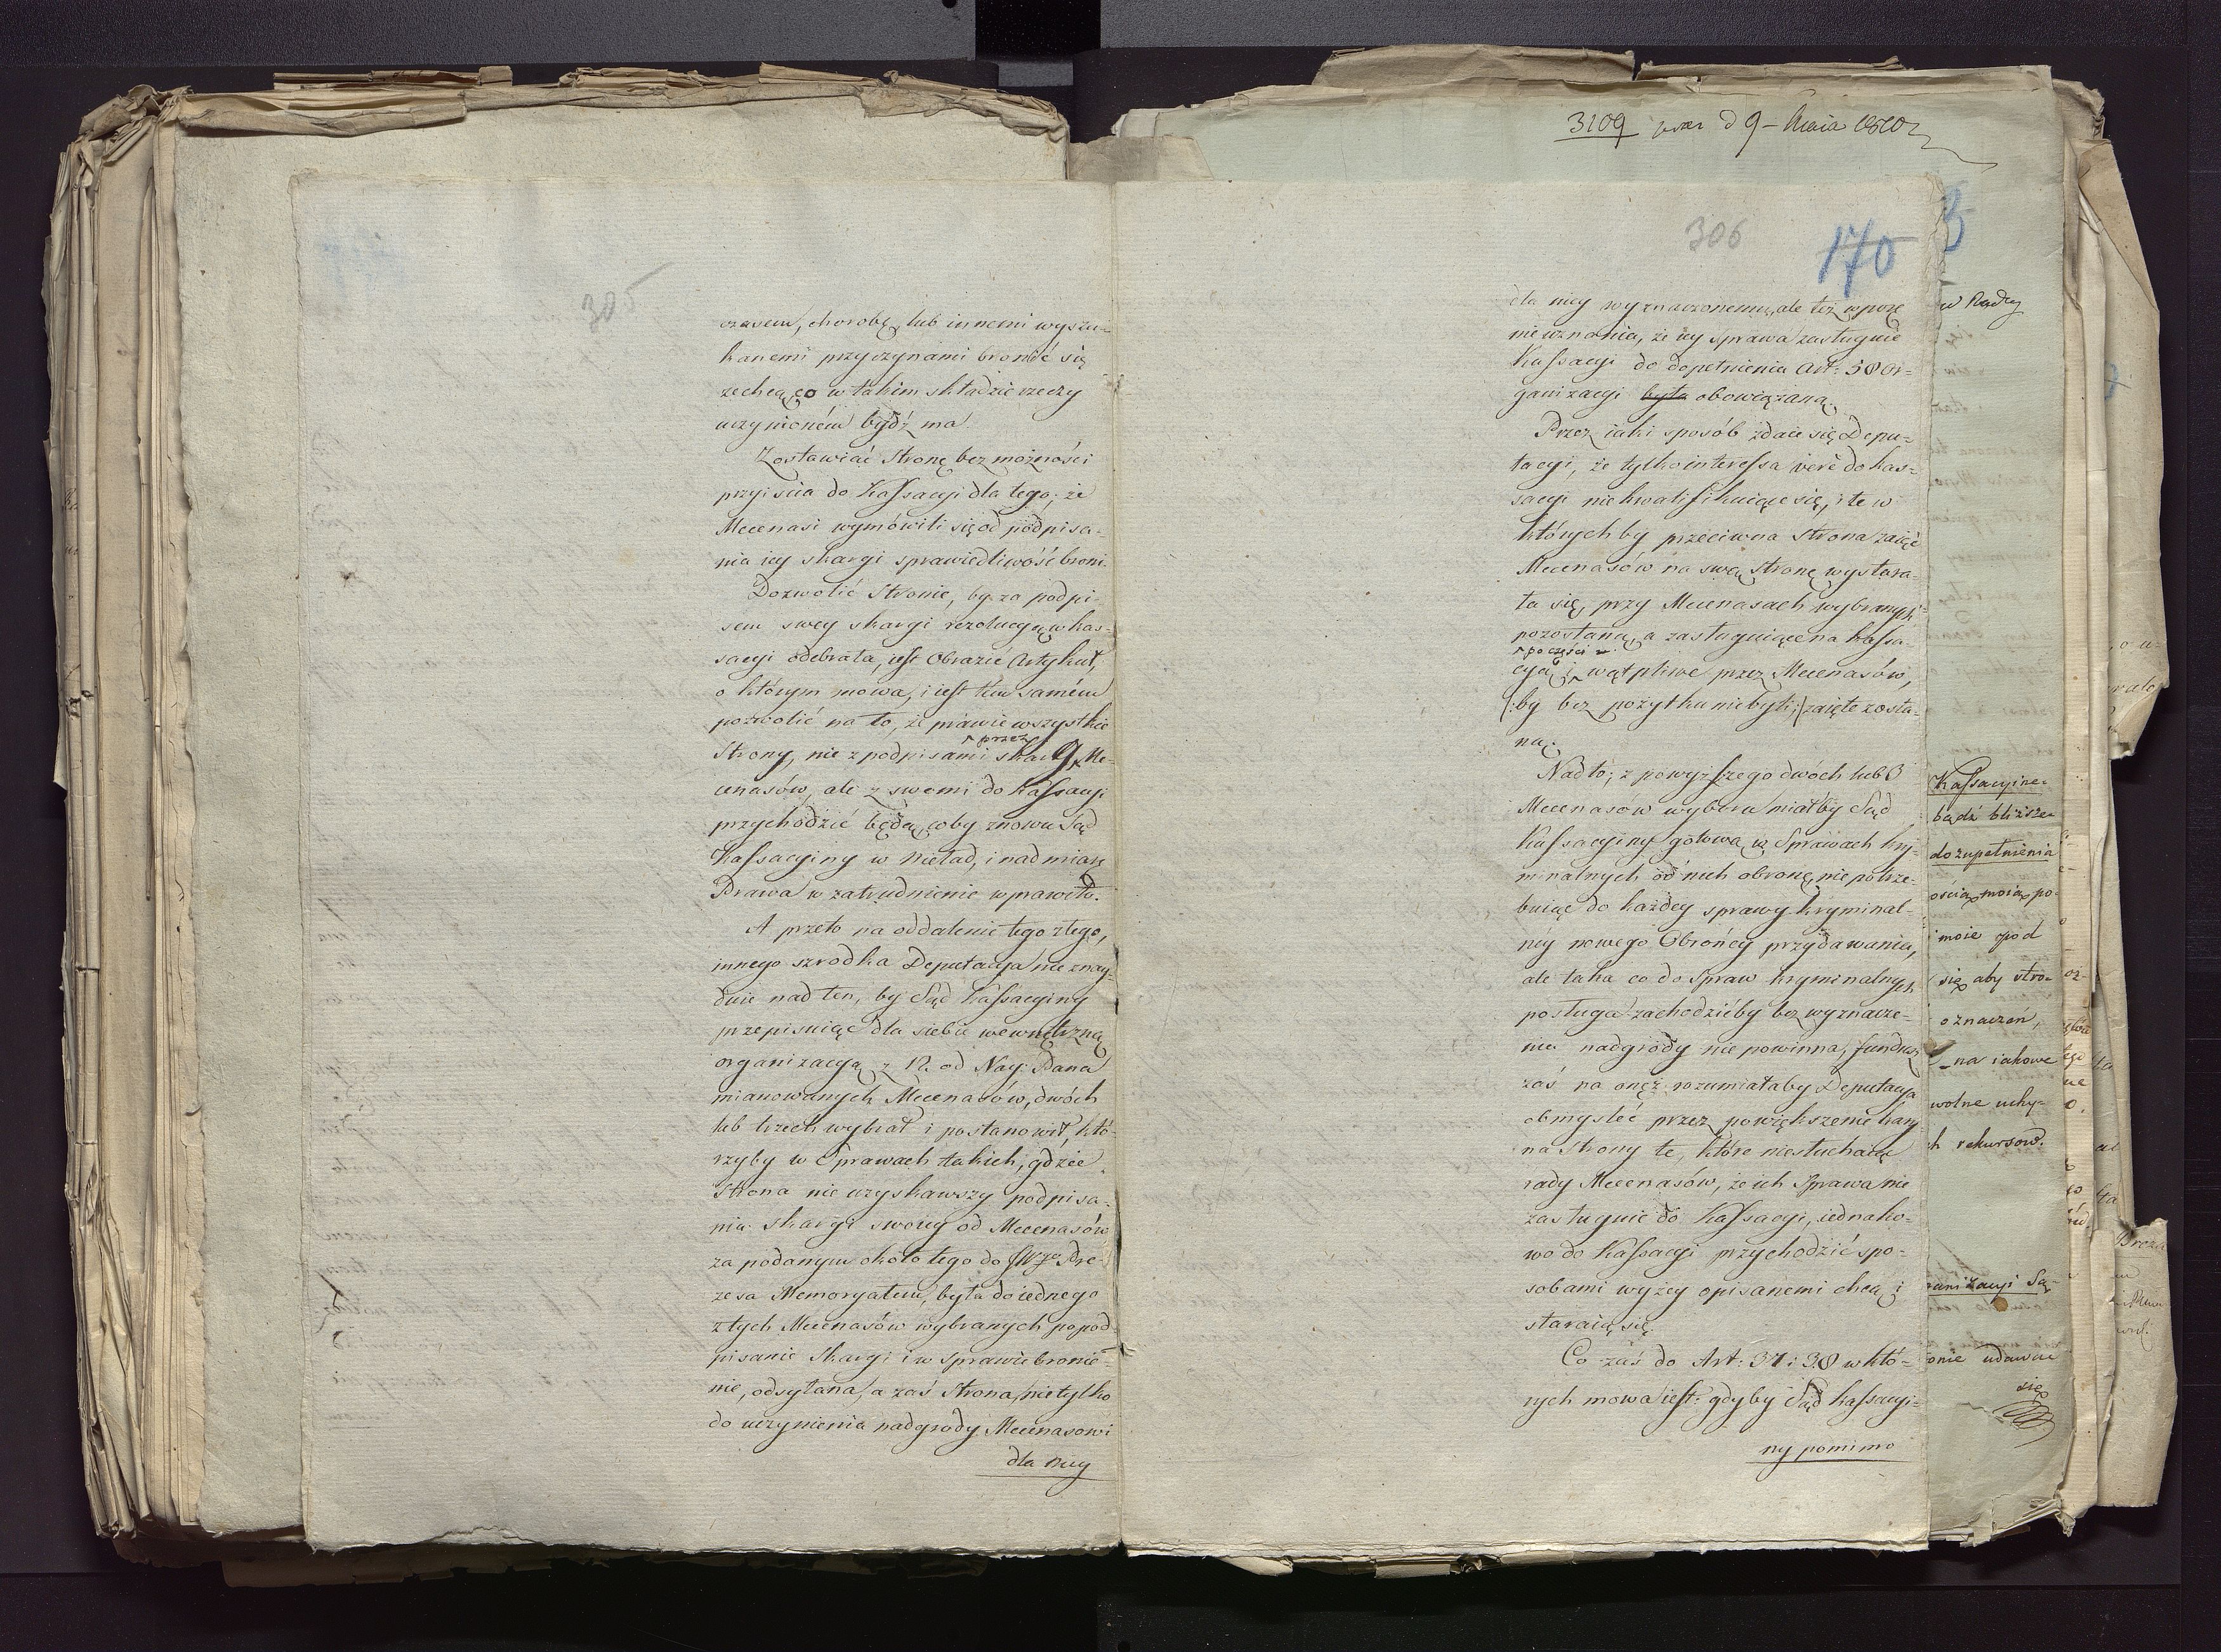 305
czasem, chorobą, lub innemi wyszu-
kanemi przyczynami bronić się
zechcą, co w takim składzie rzeczy
uczynionem bydź ma.
Zostawiać Stronę bez możności
przyiścia do Kassacyi dla tego, że
Mecenasi wymówili się od podpisa-
nia iey skargi sprawiedliwość broni.
Dozwolić Stronie, by za podpi-
sem swey skargi rezolucyą w kas-
sacyi odebrała, iest obrazić Artykuł,
o którym mowa, i iest tém samém
pozwolić na to, że prawie wszystkie
Strony, nie z podpisami skarg przez Me-
cenasów, ale z swemi do Kassacyi
przychodzić będą, coby znowu Sąd
Kassacyiny w nieład, i nad miarę
Prawa w zatrudnienie wprawiło.
A przeto na oddalenie tego złego,
innego szrodka Deputacya nie znay-
duie nad ten, by Sąd Kassacyiny
przepisuiąc dla siebie wewnętrzną
organizacyą, z 12. od Nay: Pana
mianowanych Mecenasów, dwóch
lub trzech wybrał i postanowił, któ-
rzyby w Sprawach takich, gdzie
Strona nie uzyskawszy podpisa-
nia skargi swoiey od Mecenasów
za podanym około tego do JWgo Pre-
zesa Memoryałem, była do iednego
z tych Mecenasów wybranych po pod-
pisanie skargi i w sprawie bronie-
nie, odsyłana, a zaś Strona, nie tylko
do uczynienia nadgrody Mecenasowi
dla niey
3109 d 9 - Maia 1810
306
170
dla niey wyznaczonemu, ale też w porę
nie uznania, że iey sprawa zasługuie
Kassacyi do dopełnienia Art: 58 Or-
ganizacyi była obowiązaną.
Przez iaki sposób zdaie się Depu-
tacyi, że tylko interessa veré do kas-
sacyi niekwalifikuiące się, i te w
których by przeciwna Strona zaiąć
Mecenasów na swą stronę wystara-
ła się, przy Mecenasach wybranych
pozostaną, a zasługuiące na kassa-
po części
cyą, i wątpliwe przez Mecenasów,
(:by bez pożytku niebyli:) zaięte zosta-
ną.
Nadto, z powyższego dwóch lub 3
Mecenasów wyboru miałby Sąd
Kassacyiny gotową w Sprawach kry-
minalnych od nich obronę, nie potrze-
buiąc do każdey sprawy kryminal-
néy nowego Obrońcy przydawania,
ale taka co do Spraw kryminalnych
posługa zachodzićby bez wyznacze-
nia nadgrody nie powinna, fundusz
zaś na onęż rozumiałaby Deputacya
obmysleć przez powiększenie kary
na Strony te, które niesłuchaią
rady Mecenasów, że ich Sprawa nie
zasługuie do Kassacyi, iednako-
wo do Kassacyi przychodzić spo-
sobami wyżey opisanemi chcą i
staraią się.
Co zaś do Art: 37 i 38 w któ-
rych mowa iest: gdyby Sąd Kassacyi-
ny pomimo
w Radzy
Kassacyine
bądź bliższe
do zupełnienia
ością moią po-
moie pod
się aby stro-
oznaczeń,
na iakowe
wolne uchy-
rekursow.
anizacyi Są-
onie udawać
się